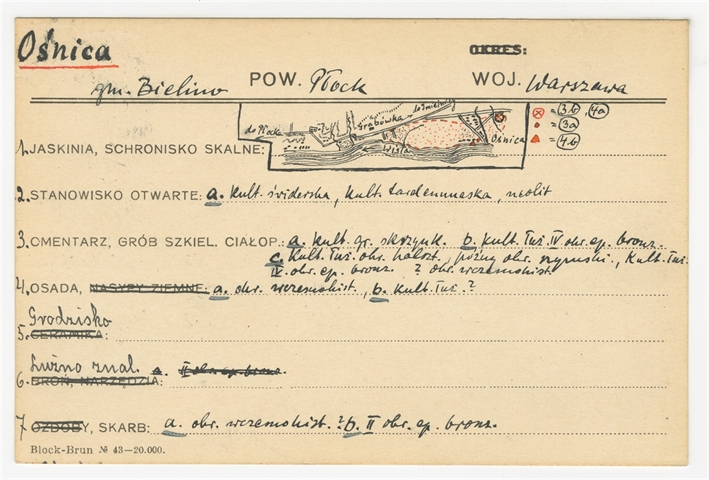 Ośnica
OKRES:
gm. Bielino POW. Płock WOJ. Warszawa
do Płocka Grabówka Wisła Ośnica
= 3b, 4a
= 3a
= 4b
1. JASKINIA, SCHRONISKO SKALNE:
2. STANOWISKO OTWARTE: a. kult. świderska, kult. tardenuaska, neolit
3. CMENTARZ, GRÓB SZKIEL. CIAŁOP.: a. kult. gr. skrzynk. b. kult. łuż. IV okr. ep. bronz.
c. kult. łuż. okr. halszt., późny okr. rzymski, kult. łuż.
IV. okr. ep. bronz. ? okr. wczesnohist.
4. OSADA, NASYPY ZIEMNE: a. okr. wczesnohist., b. kult. łuż. ?
Grodzisko
5. CERAMIKA:
Luźno znal. a. II okr. ep. bronz.
6. BROŃ, NARZĘDZIA:
7. OZDOBY, SKARB: a. okr. wczesnohist. ? b. II okr. ep. bronz.
Block-Brun № 43—20.000.